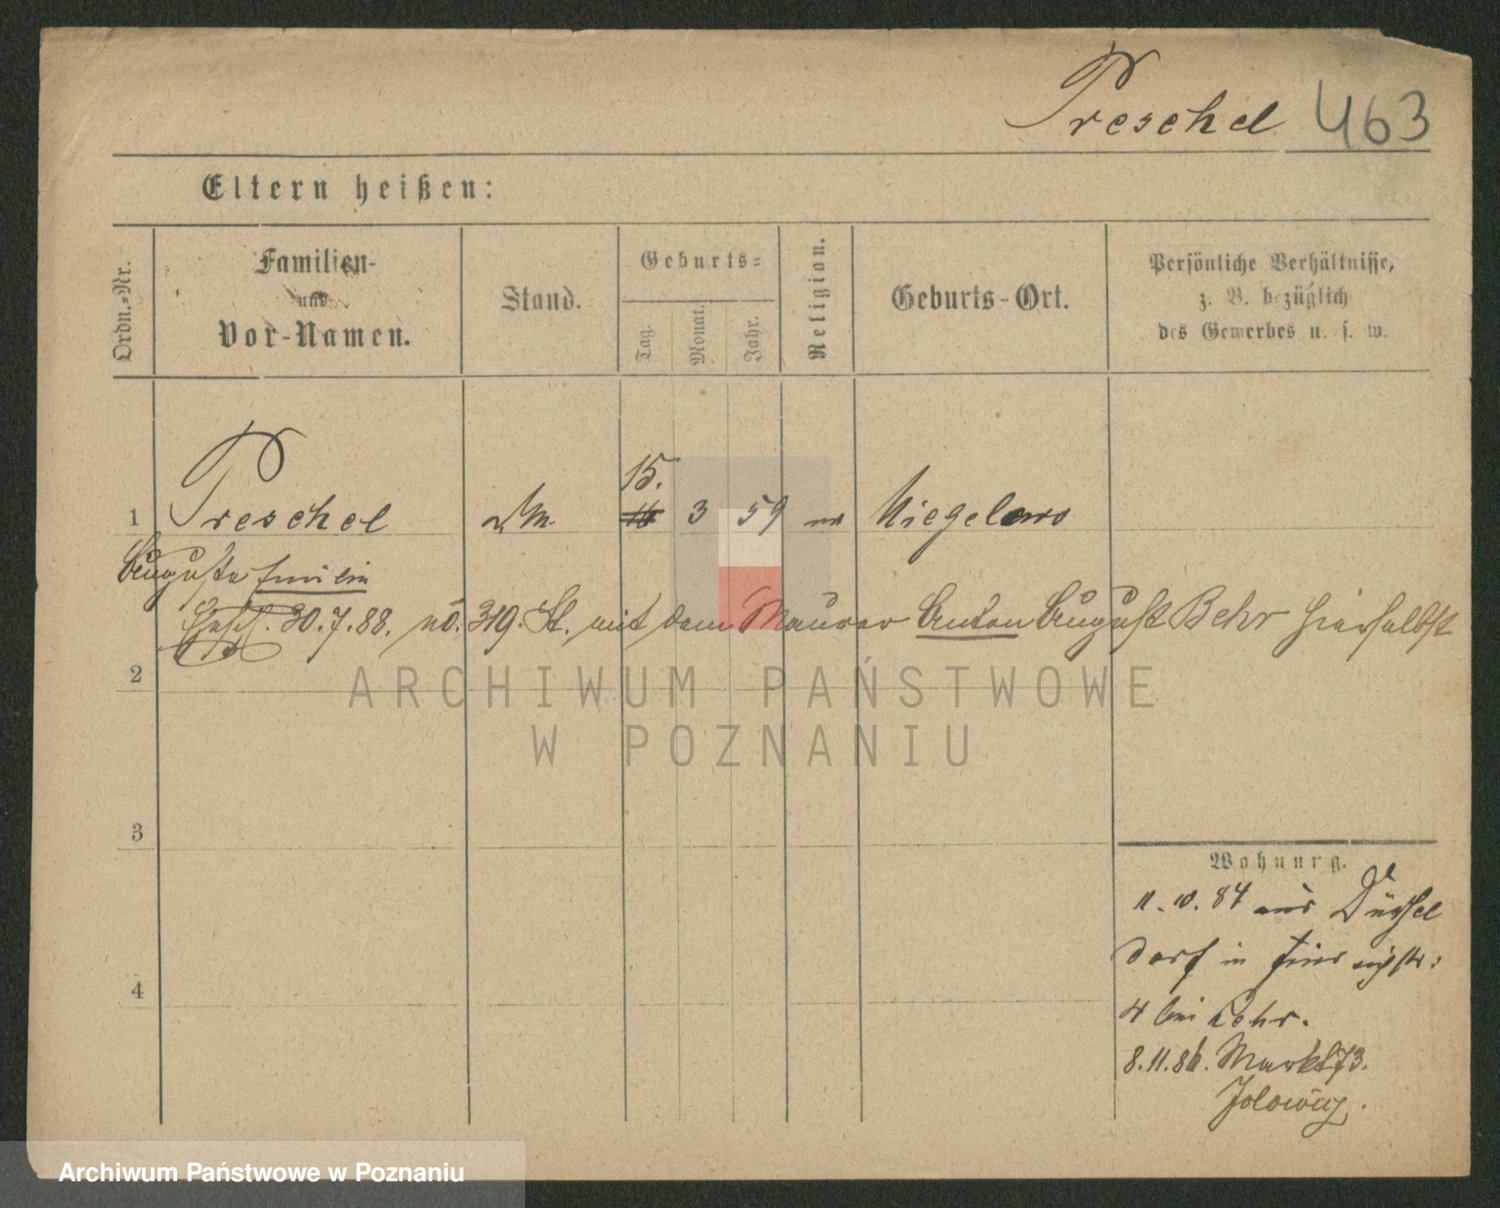 Preschel 463
Eltern heißen:
Ordn.-Nr.
Familien-
und
Vor-Namen.
Stand.
Geburts-
Tag.
Monat.
Jahr.
Religion.
Geburts-Ort.
Persönliche Verhältnisse,
z. B. bezüglich
des Gewerbes u. s. w.
15.
1 Preschel 3 59
Auguste Emilie
30.7.88. no. 319. St. mit dem Maurer Anton August Behr hierselbst
2
ARCHIWUM PAŃSTWOWE
W POZNANIU
3
Wohnung.
11.10.84 aus Düssel
dorf in
4
4 bei Lehr.
8.11.86. Markt 73.
Archiwum Państwowe w Poznaniu